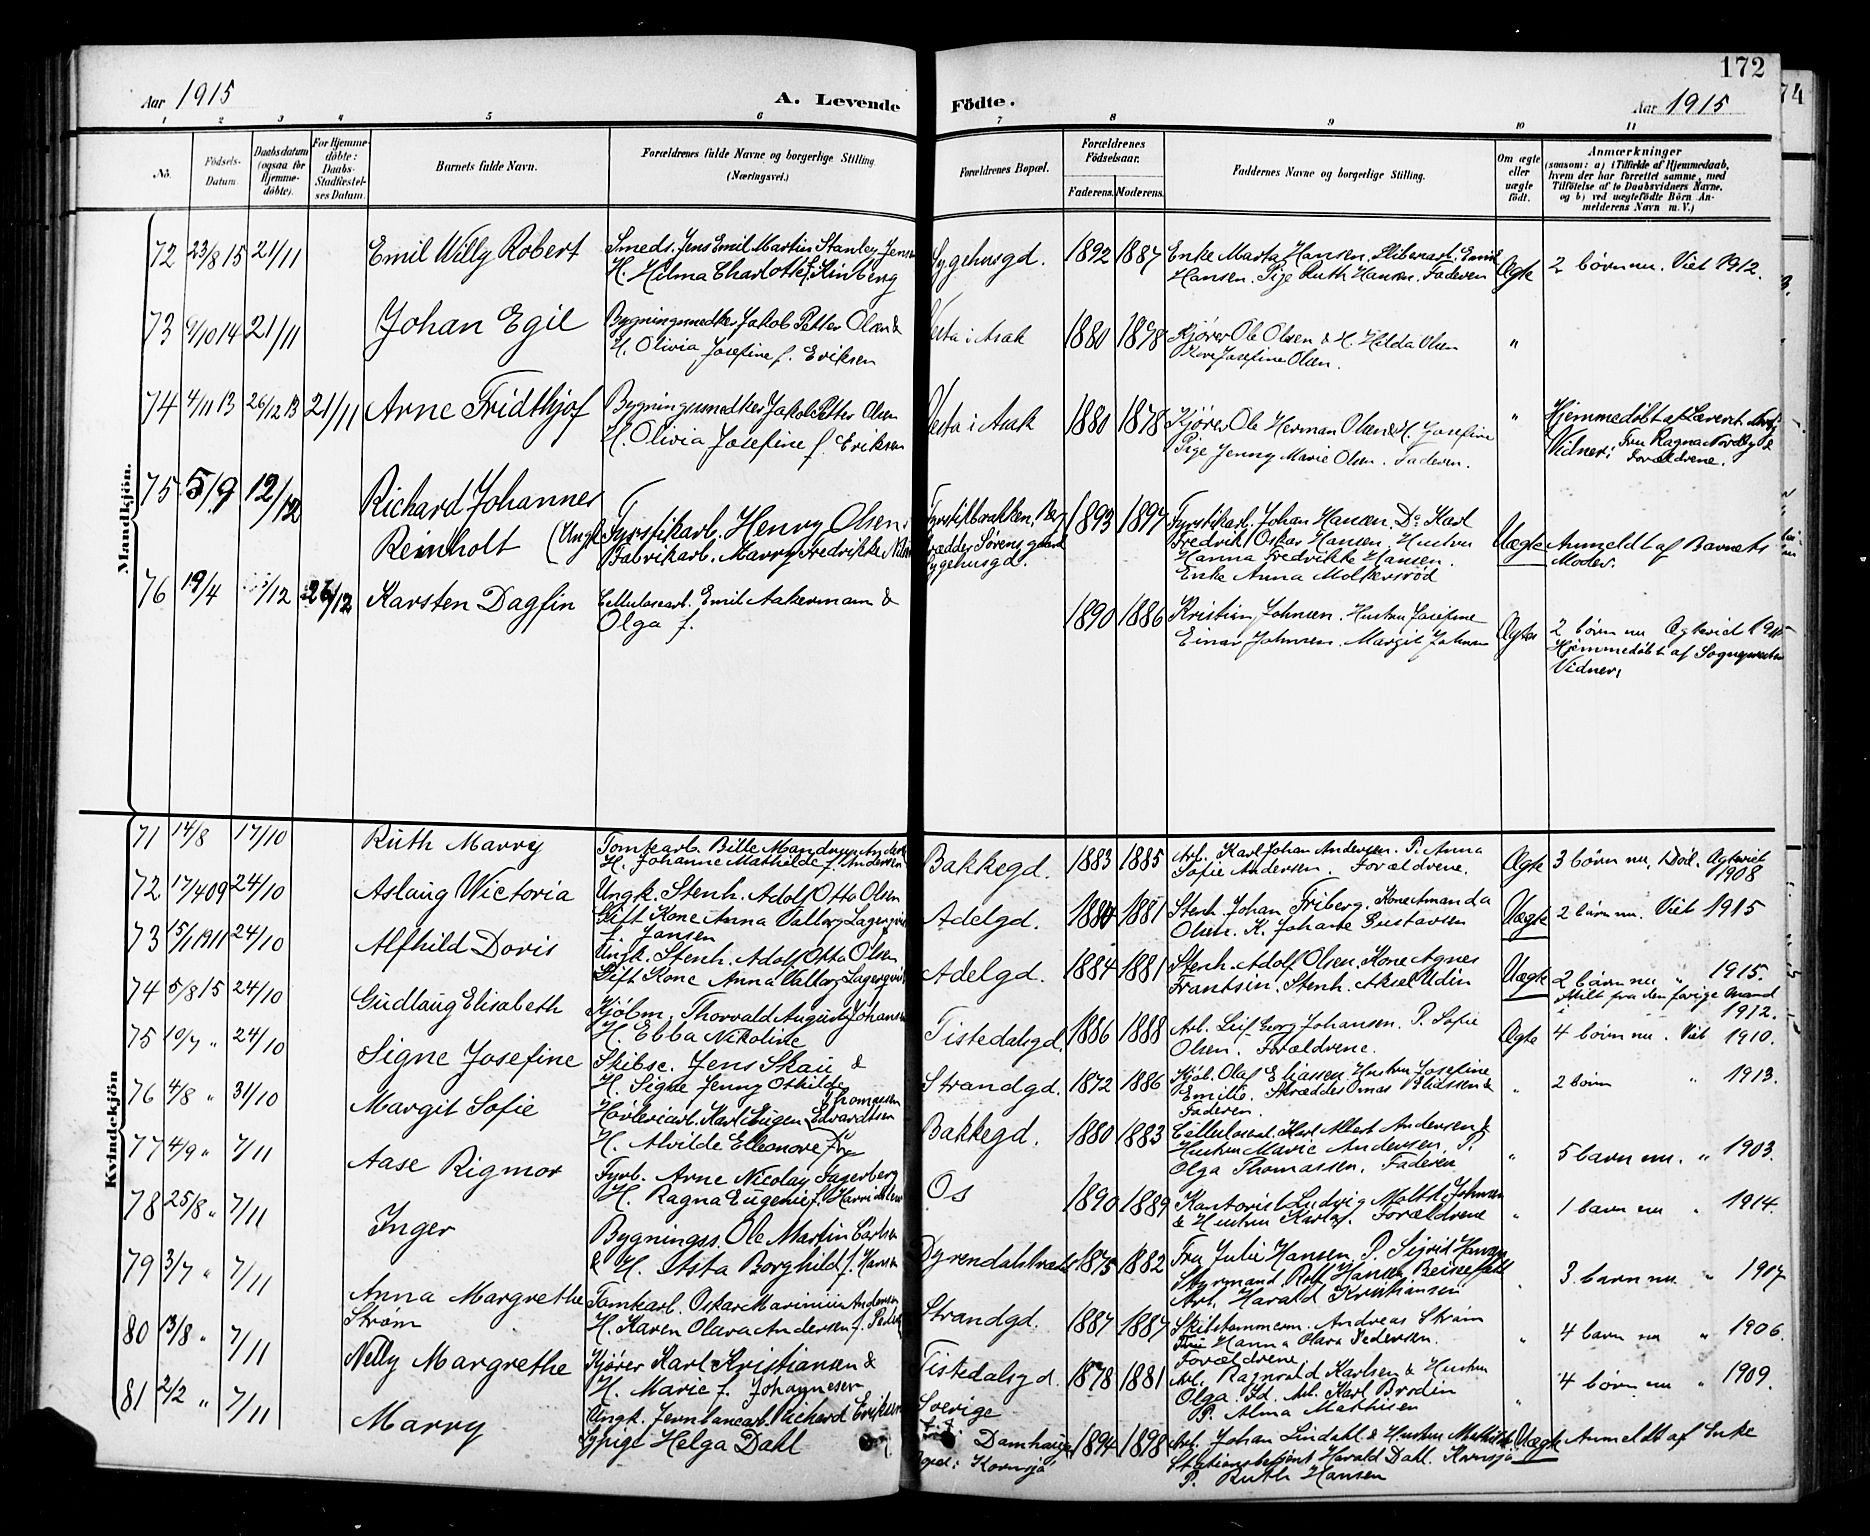 172
Aar 1915
A. Levende
Födte.
Aar 1915
1 2 3 4 5 6 7 8 9 10 11
No.
Födsels-Datum.
Daabsdatum (ogsaa for Hjemme-döbte).
For Hjemme-döbte: Daabs-Stadfæstel-ses Datum.
Barnets fulde Navn.
Forældrenes fulde Navne og borgerlige Stilling.
(Næringsvei.)
Forældrenes Bopæl.
Forældrenes Födselsaar.
Faderens. Moderens.
Faddernes Navne og borgerlige Stilling.
Om ægte eller uægte födt.
Anmærkninger
(saasom: a) i Tilfælde af Hjemmedaab, hvem der har forrettet samme, med Tilföielse af to Daabsvidners Navne, og b) ved uægtefödte Börn An-melderens Navn m. V.)
Mandkjön.
72 23/8 15 21/11 Emil Willy Robert
Smeds. Jens Emil Martin Stanley Jensen
H. Hilma Charlotte f. Kinberg
Sygehusgd. 1892 1887
Enke Marta Hansen. Slibearb. Emil
Hansen. Pige Ruth Hansen. Faderen
Ægte 2 børn nu. Viet 1912.
73 9/10 14 21/11 Johan Egil
Bygningssnedker Jakob Petter Olsen &
H. Olivia Josefine f. Eriksen
Vesta i Asak 1880 1878
Kjører Ole Olsen & H. Hilda Olsen
Kone Josefine Olsen.
"
74 4/11 13 26/12 13 21/11 Arne Fridthjof
Bygningssnedker Jakob Petter Olsen
H. Olivia Josefine f. Eriksen
Vesta i Asak 1880 1878
Kjører Ole Herman Olsen & H. Josefine
Pige Jenny Marie Olsen. Faderen.
"
Hjemmedøbt af Lærerinde
Vidner: Fru Ragna Nordby &
Forældrene.
75 5/9 12/12 Richard Johannes
Reinholt
(Ungk. Fyrstikarb. Henry Olsen.
Fabrikarb. Marry Fredrikke
Fyrstikbrakken,
Skrædder Sørens gaard
Sygehusgd. 1893 1897
Fyrstikarb. Johan Hansen. Do Karl
Fredrik Oskar Hansen. Hustru
Hanna Fredrikke Hansen.
Enke Anna Molkersrød
Uægte Anmeldt af Barnets
Moder.
76 19/4 /12 26/12 Karsten Dagfin
Cellulosearb. Emil Aakermann &
Olga f.
1890 1886
Kristian Johnsen. Hustru Josefine
Einar Johnsen. Margit Johnsen
Ægte 2 børn nu Ægtevid 1915
Hjemmedøbt af Sognepresten
Vidner:
Kvindekjön
71 14/8 17/10 Ruth Marry
Tomtearb. Bille Mandrup Andersen
H. Johanne Mathilde f. Andersen
Bakkegd. 1883 1885
Arb. Karl Johan Andersen. P. Anna
Sofie Andersen. Forældrene.
Ægte 3 børn nu. Død. Ægteviet
1908
72 17/4 09 24/10 Aslaug Wictoria
Ungk. Stenh. Adolf Otto Olsen
Gift Kone Anna Valborg Lagerqvist
f. Jansen
Adelgd. 1884 1881
Stenh. Johan Friberg. Kone Amanda
Olsen. K. Johanne Gustavsen
Uægte 2 børn nu. Viet 1915
73 15/1 1911 24/10 Alfhild Doris
Ungk. Stenh. Adolf Otto Olsen
Gift Kone Anna Valborg Lagerqvist
Adelgd. 1884 1881
Stenh. Adolf Olsen. Kone Agnes
Frantsin. Stenh. Aksel Udin
Uægte 2 børn nu " 1915.
Skilt fra den forige Mand
1912.
74 5/8 15 24/10 Gudlaug Elisabeth
Kjøbm. Thorvald August Johansen
H. Ebba Nikoline
Tistedalsgd. 1886 1888
Arb. Leif Georg Johansen. P. Sofie
Olsen. Forældrene.
Ægte 4 børn nu. Viet 1910.
75 10/7 " 24/10 Signe Josefine
Skibsc. Jens Skau &
H. Signe Jenny Othilde
Strandgd. 1872 1886
Kjøb. Olaf Eliassen. Hustru Josefine
Emilie. Skrædder Omas Eliassen &
Faderen.
" 2 børn " 1913.
76 4/8 " 31/10 Margit Sofie
Høvleriarb. Karl Eugen Thomassen
Edvardtsen
H. Alvilde Elleonore f.
Bakkegd. 1880 1883
Cellulosearb. Karl Albert Andersen &
Hustru Marie Andersen. P.
Olga Thomassen. Faderen
" 5 barn nu. " 1903.
77 4/9 " 7/11 Aase Rigmor
Fyrb. Arne Nicolay Fagerberg
H. Ragna Eugenie f. Henriksen
Os 1890 1889
Kantorist Ludvig Molth. Johnsen
& Hustru Karla f. Forældrene
" 1 barn nu " 1914.
78 25/8 " 7/11 Inger
Bygningss. Ole Martin Carlsen
& H. Asta Borghild f. Hansen
Dyrendalsbræk 1875 1882
Fru Julie Hansen. P. Sigrid Hansen
Styrmand Rolf Hansen
Arb. Harald Kristiansen
" 3 barn nu " 1907
79 3/7 " 7/11 Anna Margrethe
Strøm
Tomtearb. Oskar Marinius Andersen
H. Karen Olava Andersen f. Peders
Strandgd. 1887 1887
Skibstømmerm. Andreas Strøm
Fru Hanna Olava Pedersen.
Forældrene
" 4 barn nu " 1906.
80 13/8 " 7/11 Nelly Margrethe
Kjører Karl Kristiansen &
H. Marie f. Johannesen
Tistedalsgd. 1878 1881
Arb. Ragnvald Karlsen & Hustru
Olga Id. Arb. Karl Brodin
P. Alma Mathisen
" 4 børn nu " 1909.
81 2/2 " 7/11 Marry
Ungk. Jernbanearb. Richard Eriksen
Sypige Helga Dahl
Sverige
Damhaugen
Kornsjø 1894 1898
Arb. Johan Lindahl & Hustru Mathilde
Stationsbetjent Harald Dahl. Kornsjø
P. Ruth Hansen
Uægte Anmeldt af Enke